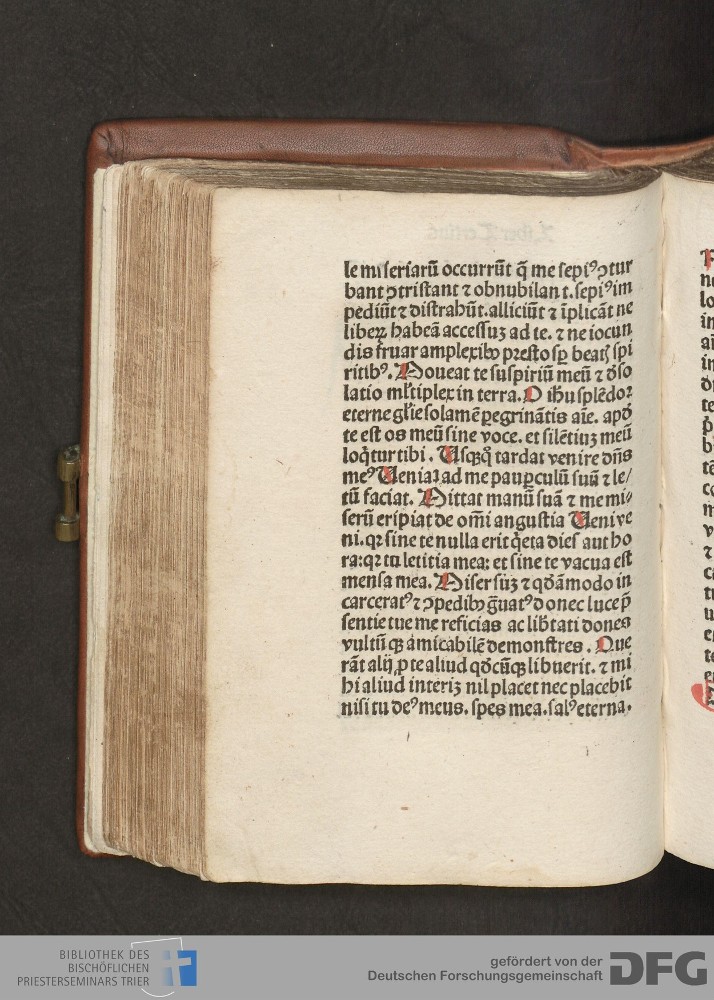 le miseriarū occurrūt q̄ me sepiꝰ ↄtur
bant ↄtristant ⁊ obnubilan t. sepiꝰ im
pediūt ⁊ distrahūt. alliciūt ⁊ īplicāt ne
liberꝝ habeā accessuꝫ ad te. ⁊ ne iocun
dis fruar amplexibꝰ presto sꝑ beatꝭ spi
ritibꝰ. Moueat te suspiriū meū ⁊ dso
latio ml̓tiplex in terra. O ihū splēdoꝛ
eterne gl̓ie solamē ꝑegrinātis aīe. apd̓
te est os meū sine voce. et silētiuꝫ meū
loq̇tur tibi. Usqꝫq̊ tardat venire dn̄s
meꝰ Ueniat ad me pauꝑculū suū ⁊ le/
tū faciat. Mittat manū suā ⁊ me mi⸗
serū eripiat de om̄i angustia Ueni ve
ni. qꝛ sine te nulla erit q̇eta dies aut ho
ra: qꝛ tu letitia mea: et sine te vacua est
mensa mea. Miser suꝫ ⁊ qd̓āmodo in
carceratꝰ ⁊ ↄpedibꝰ g̊uatꝰ donec luce p̄
sentie tue me reficias ac lib̓tati dones
vultū qꝫ amicabilē demonstres. Que
rāt alij ꝓ te aliud qd̓cūqꝫ libuerit. ⁊ mi
hi aliud interiꝫ nil placet nec placebit
nisi tu deꝰ meus. spes mea. salꝰ eterna.
BIBLIOTHEK DES
BISCHÖFLICHEN
PRIESTERSEMINARS TRIER
gefördert von der
Deutschen Forschungsgemeinschaft
DFG